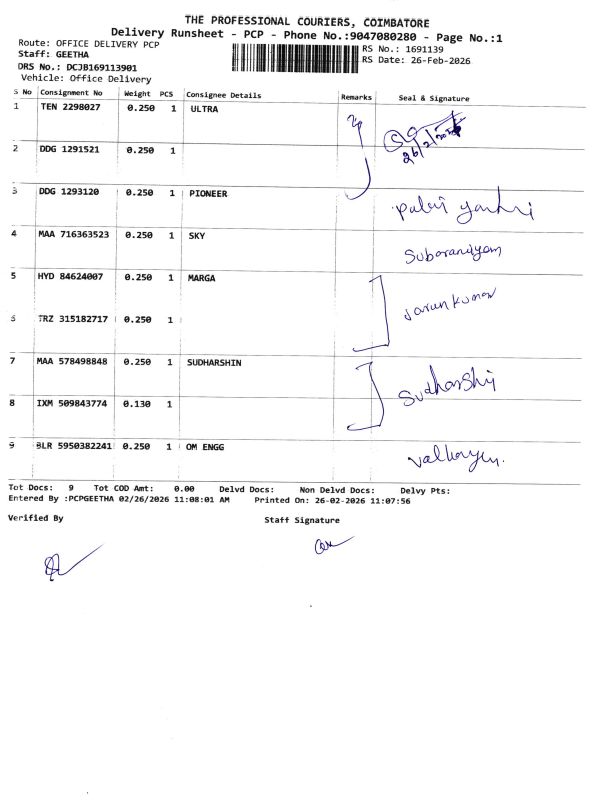 THE PROFESSIONAL COURIERS, COIMBATORE
Delivery Runsheet - PCP - Phone No.:9047080280 - Page No.:1
Route: OFFICE DELIVERY PCP
RS No.: 1691139
Staff: GEETHA
RS Date: 26-Feb-2026
DRS No.: DCJB169113901
Vehicle: Office Delivery
S No Consignment No Weight PCS Consignee Details Remarks Seal & Signature
1 TEN 2298027 0.250 1 ULTRA
26/2/2026
2 DDG 1291521 0.250 1
3 DDG 1293120 0.250 1 PIONEER
4 MAA 716363523 0.250 1 SKY
5 HYD 84624007 0.250 1 MARGA
6 TRZ 315182717 0.250 1
7 MAA 578498848 0.250 1 SUDHARSHIN
8 IXM 509843774 0.130 1
9 BLR 5950382241 0.250 1 OM ENGG
Tot Docs: 9 Tot COD Amt: 0.00 Delvd Docs: Non Delvd Docs: Delvy Pts:
Entered By :PCPGEETHA 02/26/2026 11:08:01 AM Printed On: 26-02-2026 11:07:56
Verified By Staff Signature